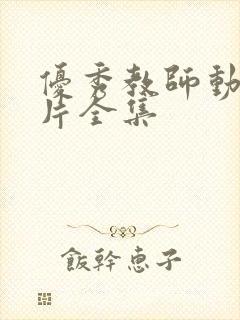 優秀教師動
片全集
飯幹恵子